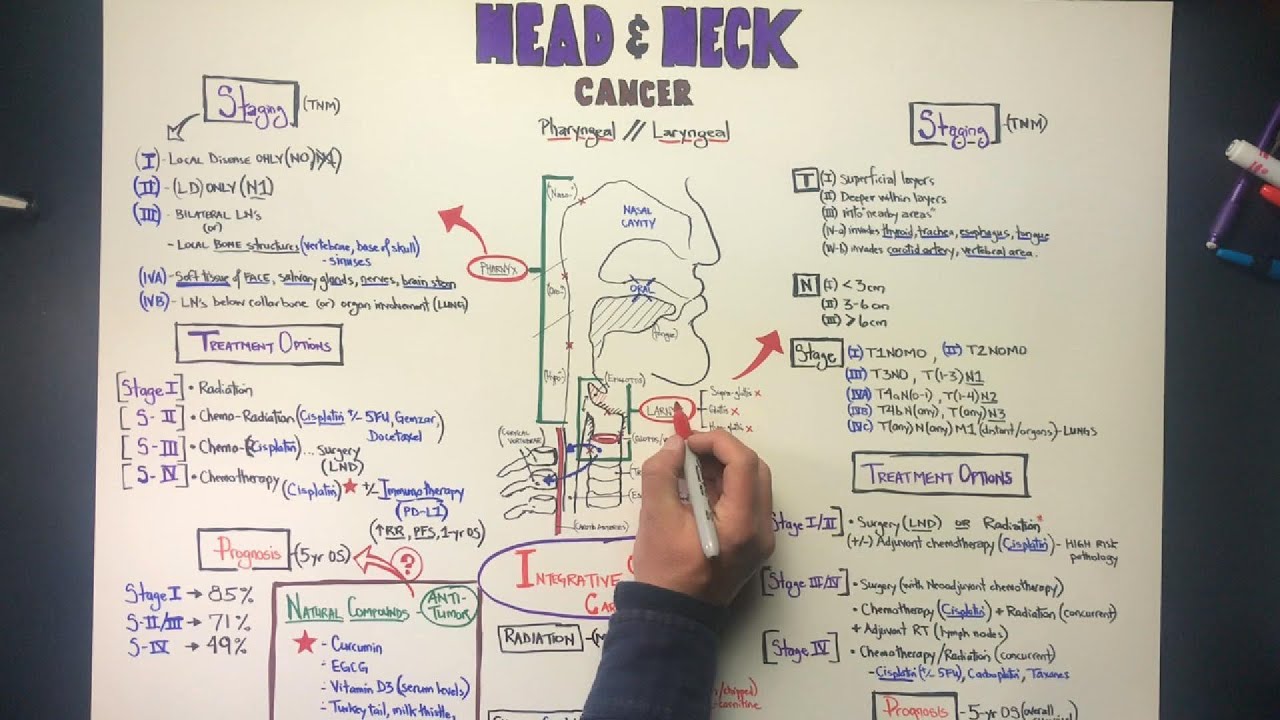 HEAD & NECK
CANCER
Pharyngeal // Laryngeal
Staging (TNM)
(I) - Local Disease ONLY (NO)
(II) - (LD) ONLY (N1)
(III) - BILATERAL LN's
(or)
- Local BONE structures (vertebrae, base of skull)
- sinuses
(IVA) - Soft tissue of FACE, salivary glands, nerves, brain stem
(IVB) - LN's below collarbone (or) organ involvement (LUNG)
TREATMENT OPTIONS
[Stage I] • Radiation
[S-II] • Chemo-Radiation (Cisplatin +/- 5FU, Gemzar,
Docetaxel)
[S-III] • Chemo-(Cisplatin)... surgery
(LND)
[S-IV] • Chemotherapy (Cisplatin) ★ +/- Immunotherapy
(PD-L1)
(↑RR, PFS, 1-yr OS)
Prognosis - (5yr OS)
?
Stage I → 85%
S-II/III → 71%
S-IV → 49%
NATURAL COMPOUNDS - ANTI-TUMOR
★ - Curcumin
- EGCG
- Vitamin D3 (serum levels)
- Turkey tail, milk thistle,
PHARNYX
(Naso-)
(Oro-)
(Hypo-)
NASAL
CAVITY
ORAL
(Tongue)
(Epiglottis)
Supra-glottis x
Glottis x
(CERVICAL
VERTEBRAE)
INTEGRATIVE
RADIATION
Staging - (TNM)
T (I) Superficial layers
(II) Deeper within layers
(III) into "nearby areas"
(IV-a) invades thyroid, trachea, esophagus, tongue
(IV-b) invades carotid artery, vertebral area.
N (I) < 3cm
(II) 3-6cm
(III) ≥ 6cm
Stage (I) T1NOMO, (II) T2NOMO
(III) T3NO, T(1-3)N1
(IVA) T4aN(0-1), T(1-4)N2
(IVB) T4bN(any), T(any)N3
(IVC) T(any)N(any)M1 (distant/organs) - LUNGS
TREATMENT OPTIONS
Stage I/II] • Surgery (LND) OR Radiation*
(+/-) Adjuvant chemotherapy (Cisplatin) - HIGH RISK
pathology
[Stage III/IV] • Surgery (with Neoadjuvant chemotherapy)
• Chemotherapy (Cisplatin) + Radiation (concurrent)
+ Adjuvant RT (lymph nodes)
[Stage IV] • Chemotherapy/Radiation (concurrent)
- Cisplatin (+/- 5FU), Carboplatin, Taxanes
Prognosis - 5-yr OS (overall